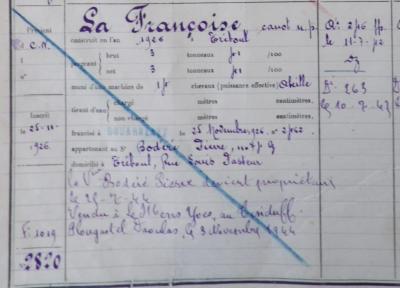 La Françoise, canot n.p.
construit en l'an 1926 à Tréboul
jaugeant brut 3 tonneaux /100
net 3 tonneaux /100
muni d'une machine de chevaux (puissance effective)
tirant d'eau chargé mètres centimètres,
non chargé mètres centimètres.
francisé à DOUARNENEZ le 25 Novembre 1926, n° 2762
appartenant au Sr Bodéré Pierre,
domicilié à Tréboul, Rue Louis Pasteur
la Vve Bodéré Pierre devient propriétaire
le 25-7-44
Vendu à Le Yves, au
Plougastel Daoulas, le 3 Novembre 1944
C.N.
n°
Inscrit
le 25-11-
1926
F. 1019
2820
le 11-7-42
D. 263
le 10-7-47